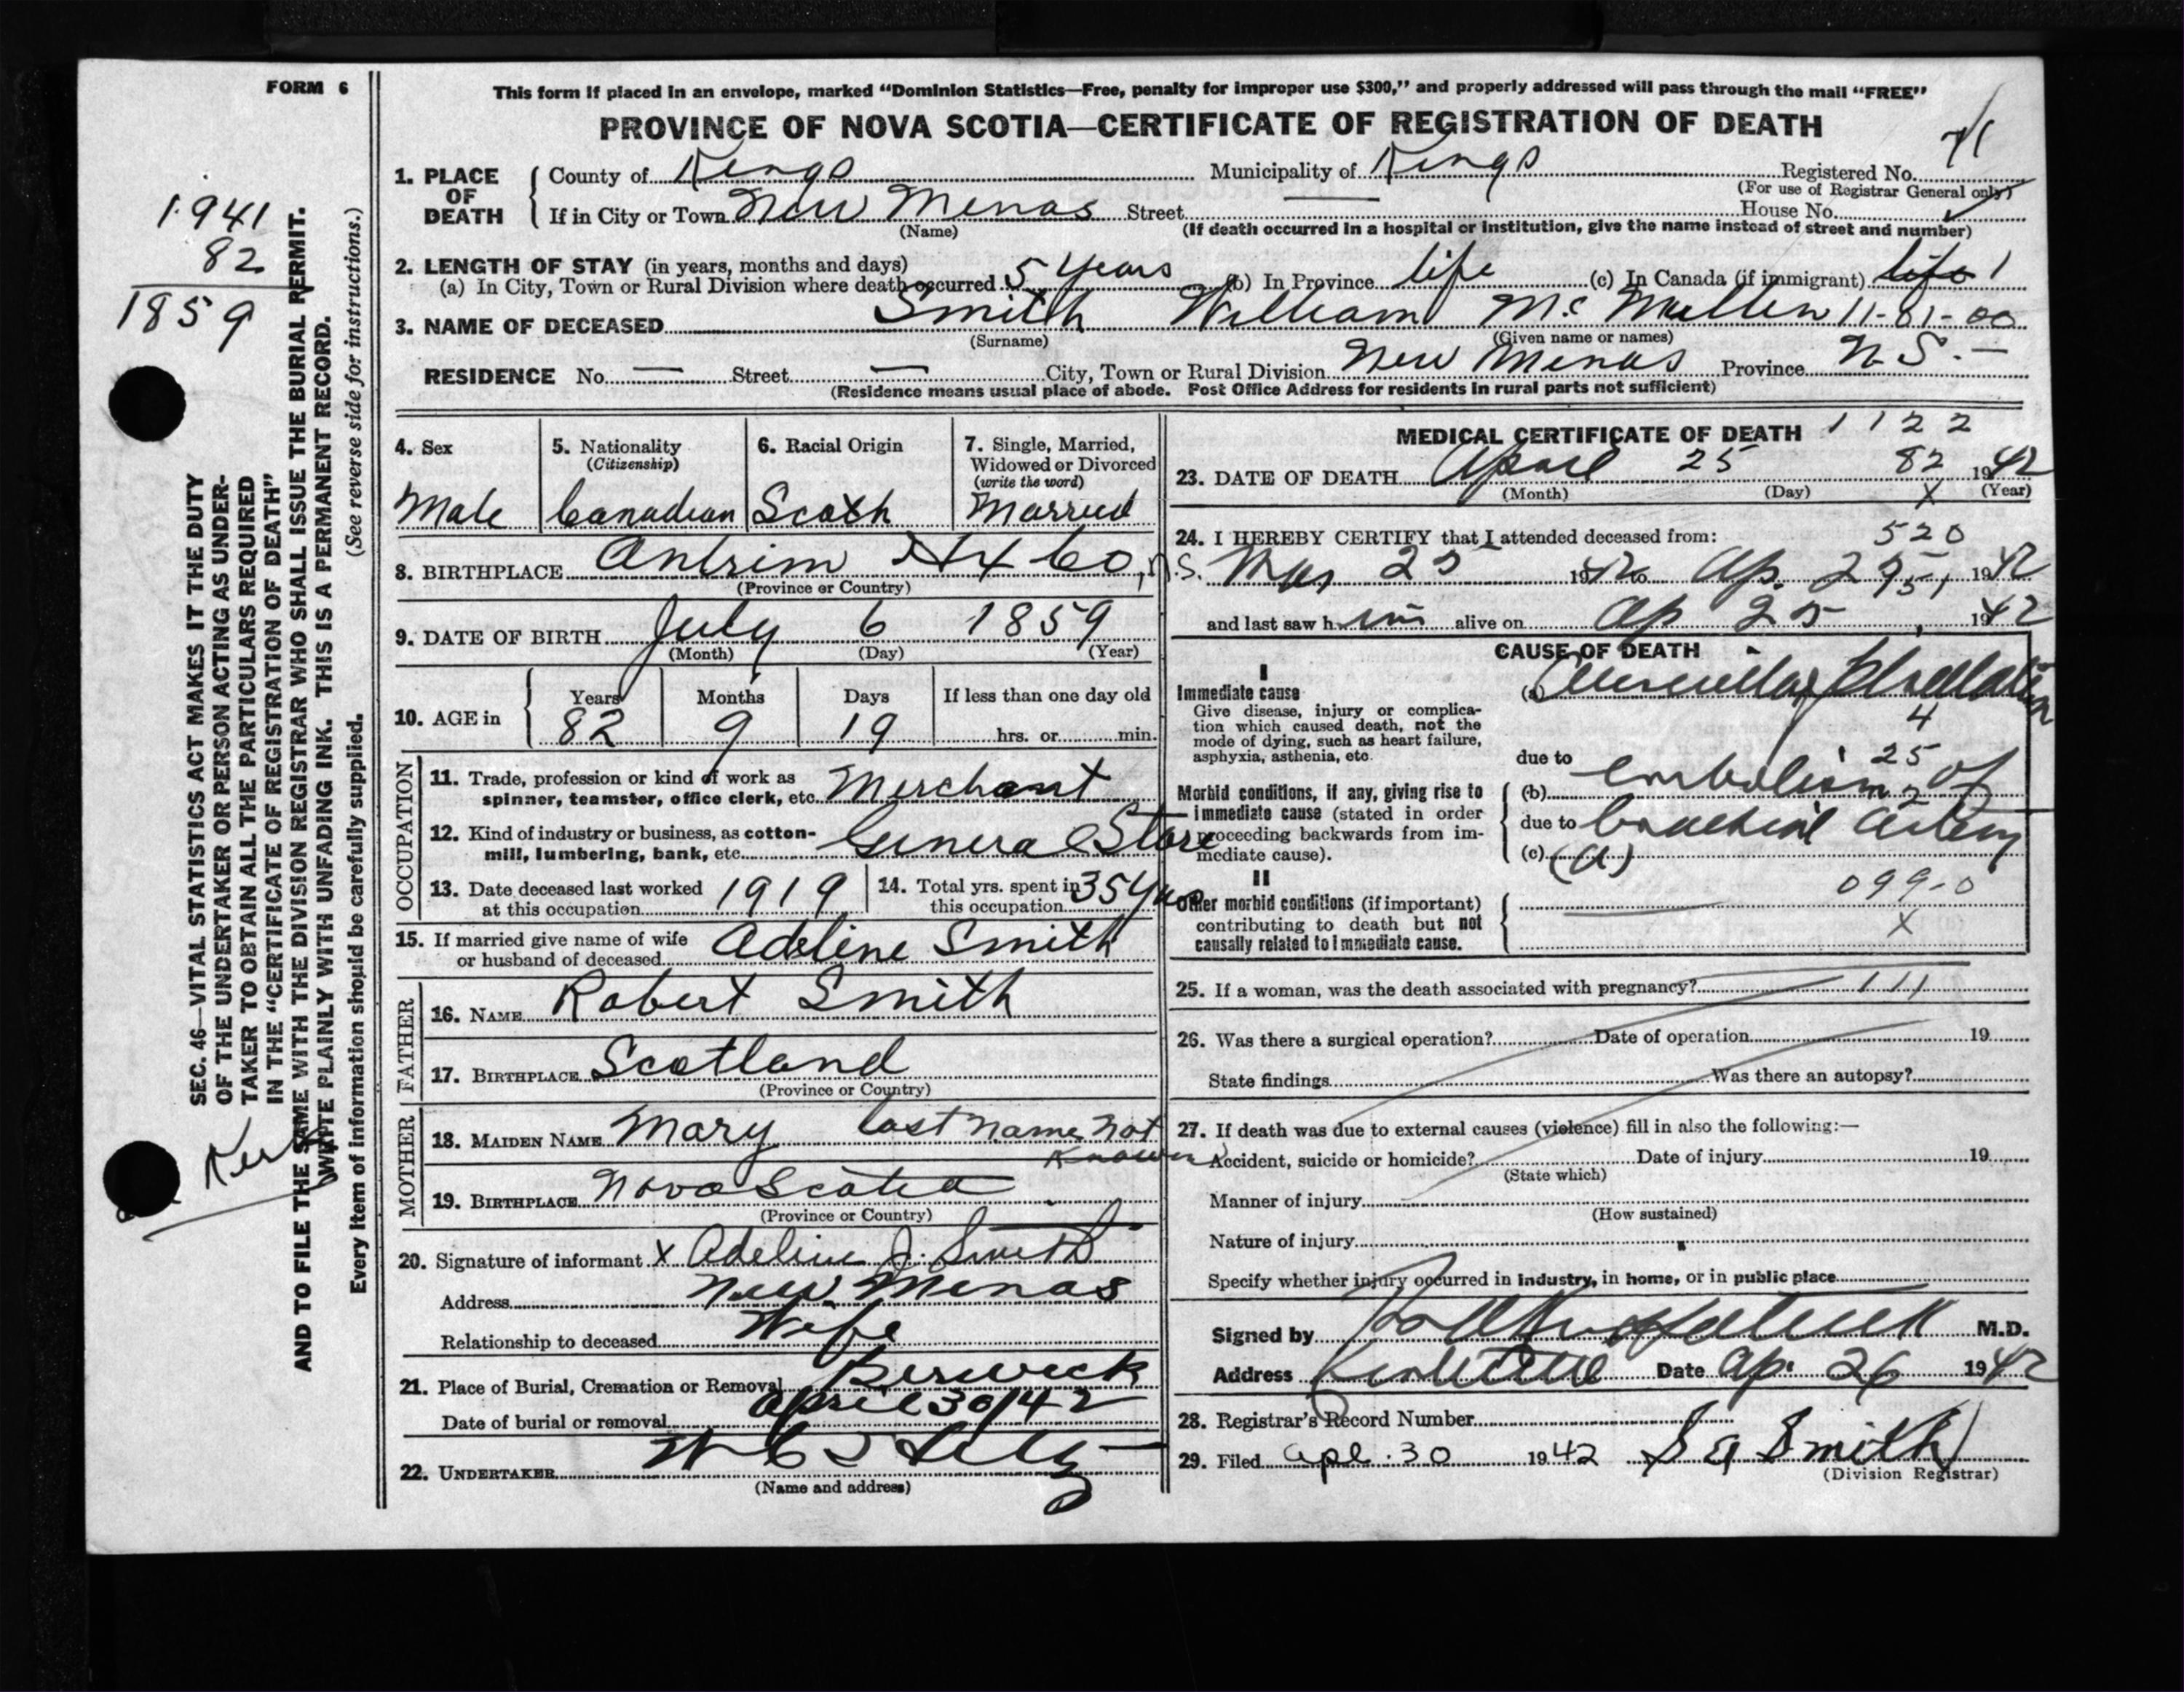 FORM 6
This form if placed in an envelope, marked “Dominion Statistics—Free, penalty for improper use $300,” and properly addressed will pass through the mail “FREE”
PROVINCE OF NOVA SCOTIA—CERTIFICATE OF REGISTRATION OF DEATH
71
1. PLACE OF DEATH
County of Kings Municipality of Kings Registered No.
(For use of Registrar General only)
If in City or Town New Minas Street — House No.
(Name) (If death occurred in a hospital or institution, give the name instead of street and number)
2. LENGTH OF STAY (in years, months and days)
(a) In City, Town or Rural Division where death occurred 5 years (b) In Province life (c) In Canada (if immigrant) life 1
3. NAME OF DECEASED Smith William Mc Mullen 11-81-00
(Surname) (Given name or names)
RESIDENCE No. — Street — City, Town or Rural Division New Minas Province N S. —
(Residence means usual place of abode. Post Office Address for residents in rural parts not sufficient)
4. Sex
Male
5. Nationality
(Citizenship)
Canadian
6. Racial Origin
Scotch
7. Single, Married,
Widowed or Divorced
(write the word)
Married
8. BIRTHPLACE Antrim Hfx Co, N.S.
(Province or Country)
9. DATE OF BIRTH July 6 1859
(Month) (Day) (Year)
10. AGE in
Years Months Days If less than one day old
82 9 19 hrs. or min.
OCCUPATION
11. Trade, profession or kind of work as
spinner, teamster, office clerk, etc. Merchant
12. Kind of industry or business, as cotton-
mill, lumbering, bank, etc. General Store
13. Date deceased last worked
at this occupation 1919
14. Total yrs. spent in
this occupation 35 yrs
15. If married give name of wife
or husband of deceased Adeline Smith
FATHER
16. NAME Robert Smith
17. BIRTHPLACE Scotland
(Province or Country)
MOTHER
18. MAIDEN NAME Mary last name not
known
19. BIRTHPLACE Nova Scotia
(Province or Country)
20. Signature of informant x Adeline J. Smith
Address New Minas
Relationship to deceased Wife
21. Place of Burial, Cremation or Removal Berwick
Date of burial or removal April 30/42
22. UNDERTAKER
(Name and address)
MEDICAL CERTIFICATE OF DEATH 1122
23. DATE OF DEATH April 25 82 1942
(Month) (Day) x (Year)
24. I HEREBY CERTIFY that I attended deceased from: 520
Mar 25 1942 to Ap. 25 1942
951
and last saw him alive on Ap 25, 1942
CAUSE OF DEATH
I
Immediate cause
Give disease, injury or complica-
tion which caused death, not the
mode of dying, such as heart failure,
asphyxia, asthenia, etc.
(a)
4
due to 25
Morbid conditions, if any, giving rise to
immediate cause (stated in order
proceeding backwards from im-
mediate cause).
(b) embolism of
2
due to brachial artery
(c)
II
Other morbid conditions (if important)
contributing to death but not
causally related to immediate cause.
099-0
X
25. If a woman, was the death associated with pregnancy? 111
26. Was there a surgical operation? Date of operation 19
State findings Was there an autopsy?
27. If death was due to external causes (violence) fill in also the following:—
Accident, suicide or homicide? Date of injury 19
(State which)
Manner of injury
(How sustained)
Nature of injury
Specify whether injury occurred in industry, in home, or in public place
Signed by M.D.
Address Kentville Date Ap. 26 1942
28. Registrar's Record Number
29. Filed Apl. 30 1942 Smith
(Division Registrar)
1941
82
1859
SEC. 46—VITAL STATISTICS ACT MAKES IT THE DUTY
OF THE UNDERTAKER OR PERSON ACTING AS UNDER-
TAKER TO OBTAIN ALL THE PARTICULARS REQUIRED
IN THE “CERTIFICATE OF REGISTRATION OF DEATH”
AND TO FILE THE SAME WITH THE DIVISION REGISTRAR WHO SHALL ISSUE THE BURIAL PERMIT.
WRITE PLAINLY WITH UNFADING INK. THIS IS A PERMANENT RECORD.
Every item of information should be carefully supplied. (See reverse side for instructions.)